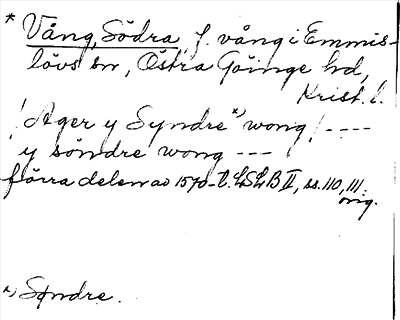 * Vång, Södra, f. vång i Emmis-
lövs sn, Östra Göinge hd,
Krist. l.
! Ager y Syndre*) wong ! ----
y söndre wong ---
förra delen av 1570-t. LSLB II, ss. 110, 111.
orig.
*) Syndre.